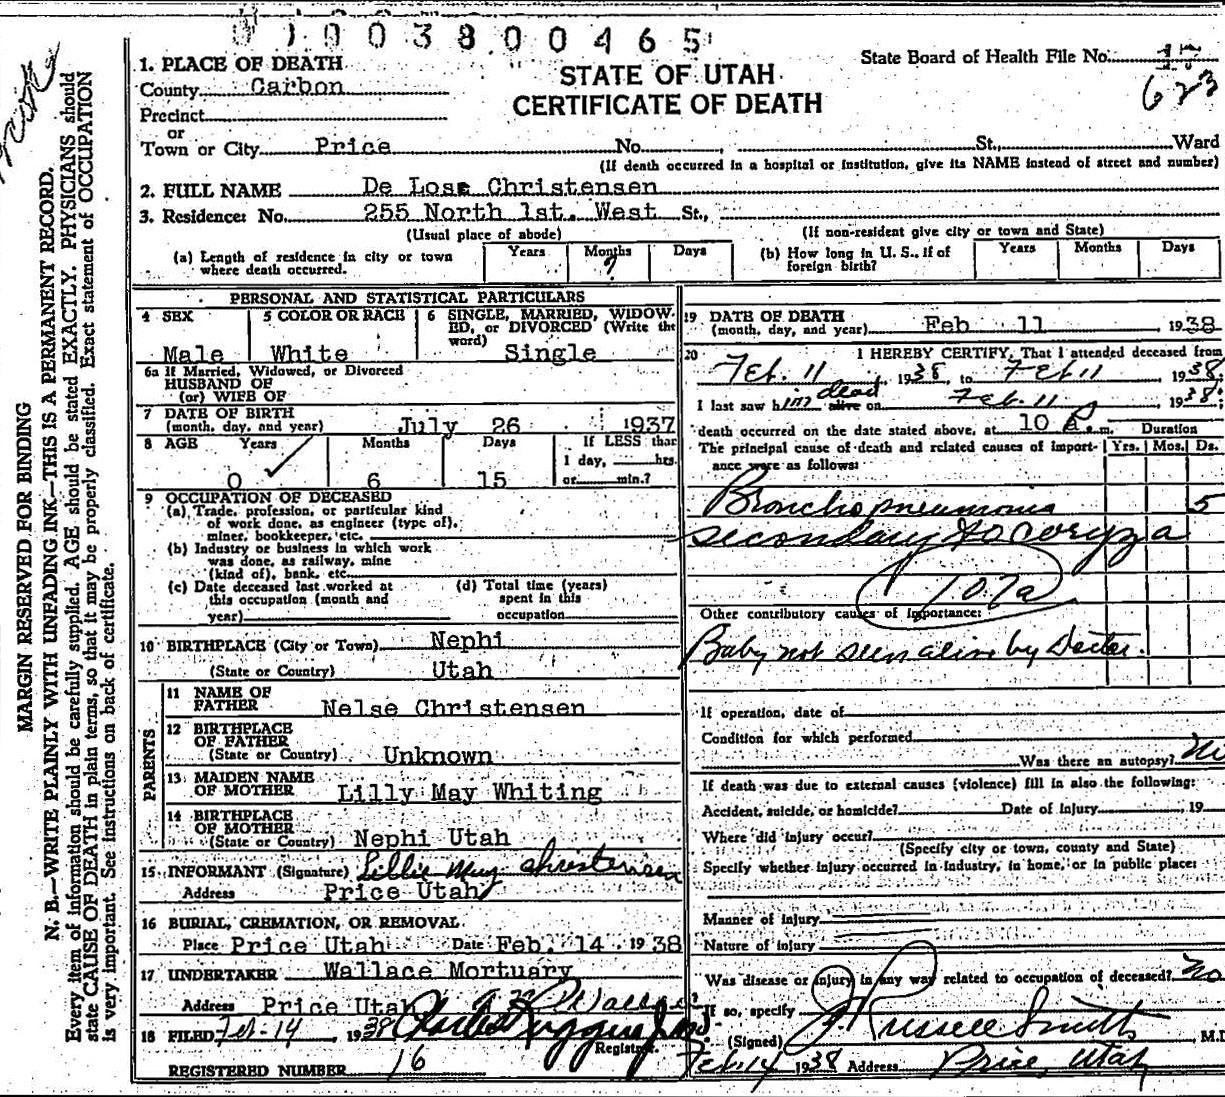 0100380 0465
1. PLACE OF DEATH
County Carbon
Precinct
or
Town or City Price No. St., Ward
(If death occurred in a hospital or institution, give its NAME instead of street and number)
STATE OF UTAH
CERTIFICATE OF DEATH
State Board of Health File No.
623
2. FULL NAME De Lose Christensen
3. Residence: No. 255 North 1st. West St.,
(Usual place of abode) (If non-resident give city or town and State)
(a) Length of residence in city or town where death occurred. Years Months ? Days
(b) How long in U. S., if of foreign birth? Years Months Days
PERSONAL AND STATISTICAL PARTICULARS
4 SEX Male
5 COLOR OR RACE White
6 SINGLE, MARRIED, WIDOWED, or DIVORCED (Write the word) Single
6a If Married, Widowed, or Divorced
HUSBAND OF
(or) WIFE OF
7 DATE OF BIRTH
(month, day, and year) July 26 1937
8 AGE Years 0 Months 6 Days 15
If LESS than
1 day, hrs.
or min.?
9 OCCUPATION OF DECEASED
(a) Trade, profession, or particular kind
of work done, as engineer (type of),
miner, bookkeeper, etc.
(b) Industry or business in which work
was done, as railway, mine
(kind of), bank, etc.
(c) Date deceased last worked at
this occupation (month and
year)
(d) Total time (years)
spent in this
occupation
10 BIRTHPLACE (City or Town) Nephi
(State or Country) Utah
PARENTS
11 NAME OF
FATHER Nelse Christensen
12 BIRTHPLACE
OF FATHER
(State or Country) Unknown
13 MAIDEN NAME
OF MOTHER Lilly May Whiting
14 BIRTHPLACE
OF MOTHER
(State or Country) Nephi Utah
15 INFORMANT (Signature) Lillie May Christensen
Address Price Utah
16 BURIAL, CREMATION, OR REMOVAL
Place Price Utah Date Feb. 14. 1938
17 UNDERTAKER Wallace Mortuary
Address Price Utah
18 FILED Feb-14 1938
Registrar
REGISTERED NUMBER 16
19 DATE OF DEATH
(month, day, and year) Feb 11 1938
20 I HEREBY CERTIFY, That I attended deceased from
Feb. 11, 1938, to Feb 11 1938;
I last saw him alive dead on Feb. 11 1938;
death occurred on the date stated above, at 10 a.m.
The principal cause of death and related causes of importance were as follows:
Duration
Yrs. Mos. Ds.
Bronchopneumonia 5
secondary to coryza
107a
Other contributory causes of importance:
Baby not seen alive by Doctor.
If operation, date of
Condition for which performed
Was there an autopsy? No
If death was due to external causes (violence) fill in also the following:
Accident, suicide, or homicide? Date of Injury , 19
Where did injury occur?
(Specify city or town, county and State)
Specify whether injury occurred in industry, in home, or in public place:
Manner of injury
Nature of injury
Was disease or injury in any way related to occupation of deceased? No
If so, specify
(Signed) J Russell Smith, M.D.
Feb. 14 1938 Address Price, Utah
MARGIN RESERVED FOR BINDING
N. B.—WRITE PLAINLY WITH UNFADING INK—THIS IS A PERMANENT RECORD.
Every item of information should be carefully supplied. AGE should be stated EXACTLY. PHYSICIANS should
state CAUSE OF DEATH in plain terms, so that it may be properly classified. Exact statement of OCCUPATION
is very important. See instructions on back of certificate.